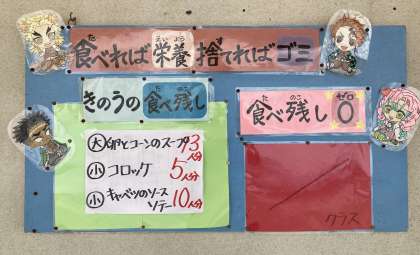 食べれば栄養 捨てればゴミ
きのうの食べ残し
大 卵とコーンのスープ 3人分
小 コロッケ 5人分
小 キャベツのソース
ソテー 10人分
食べ残し0
クラス